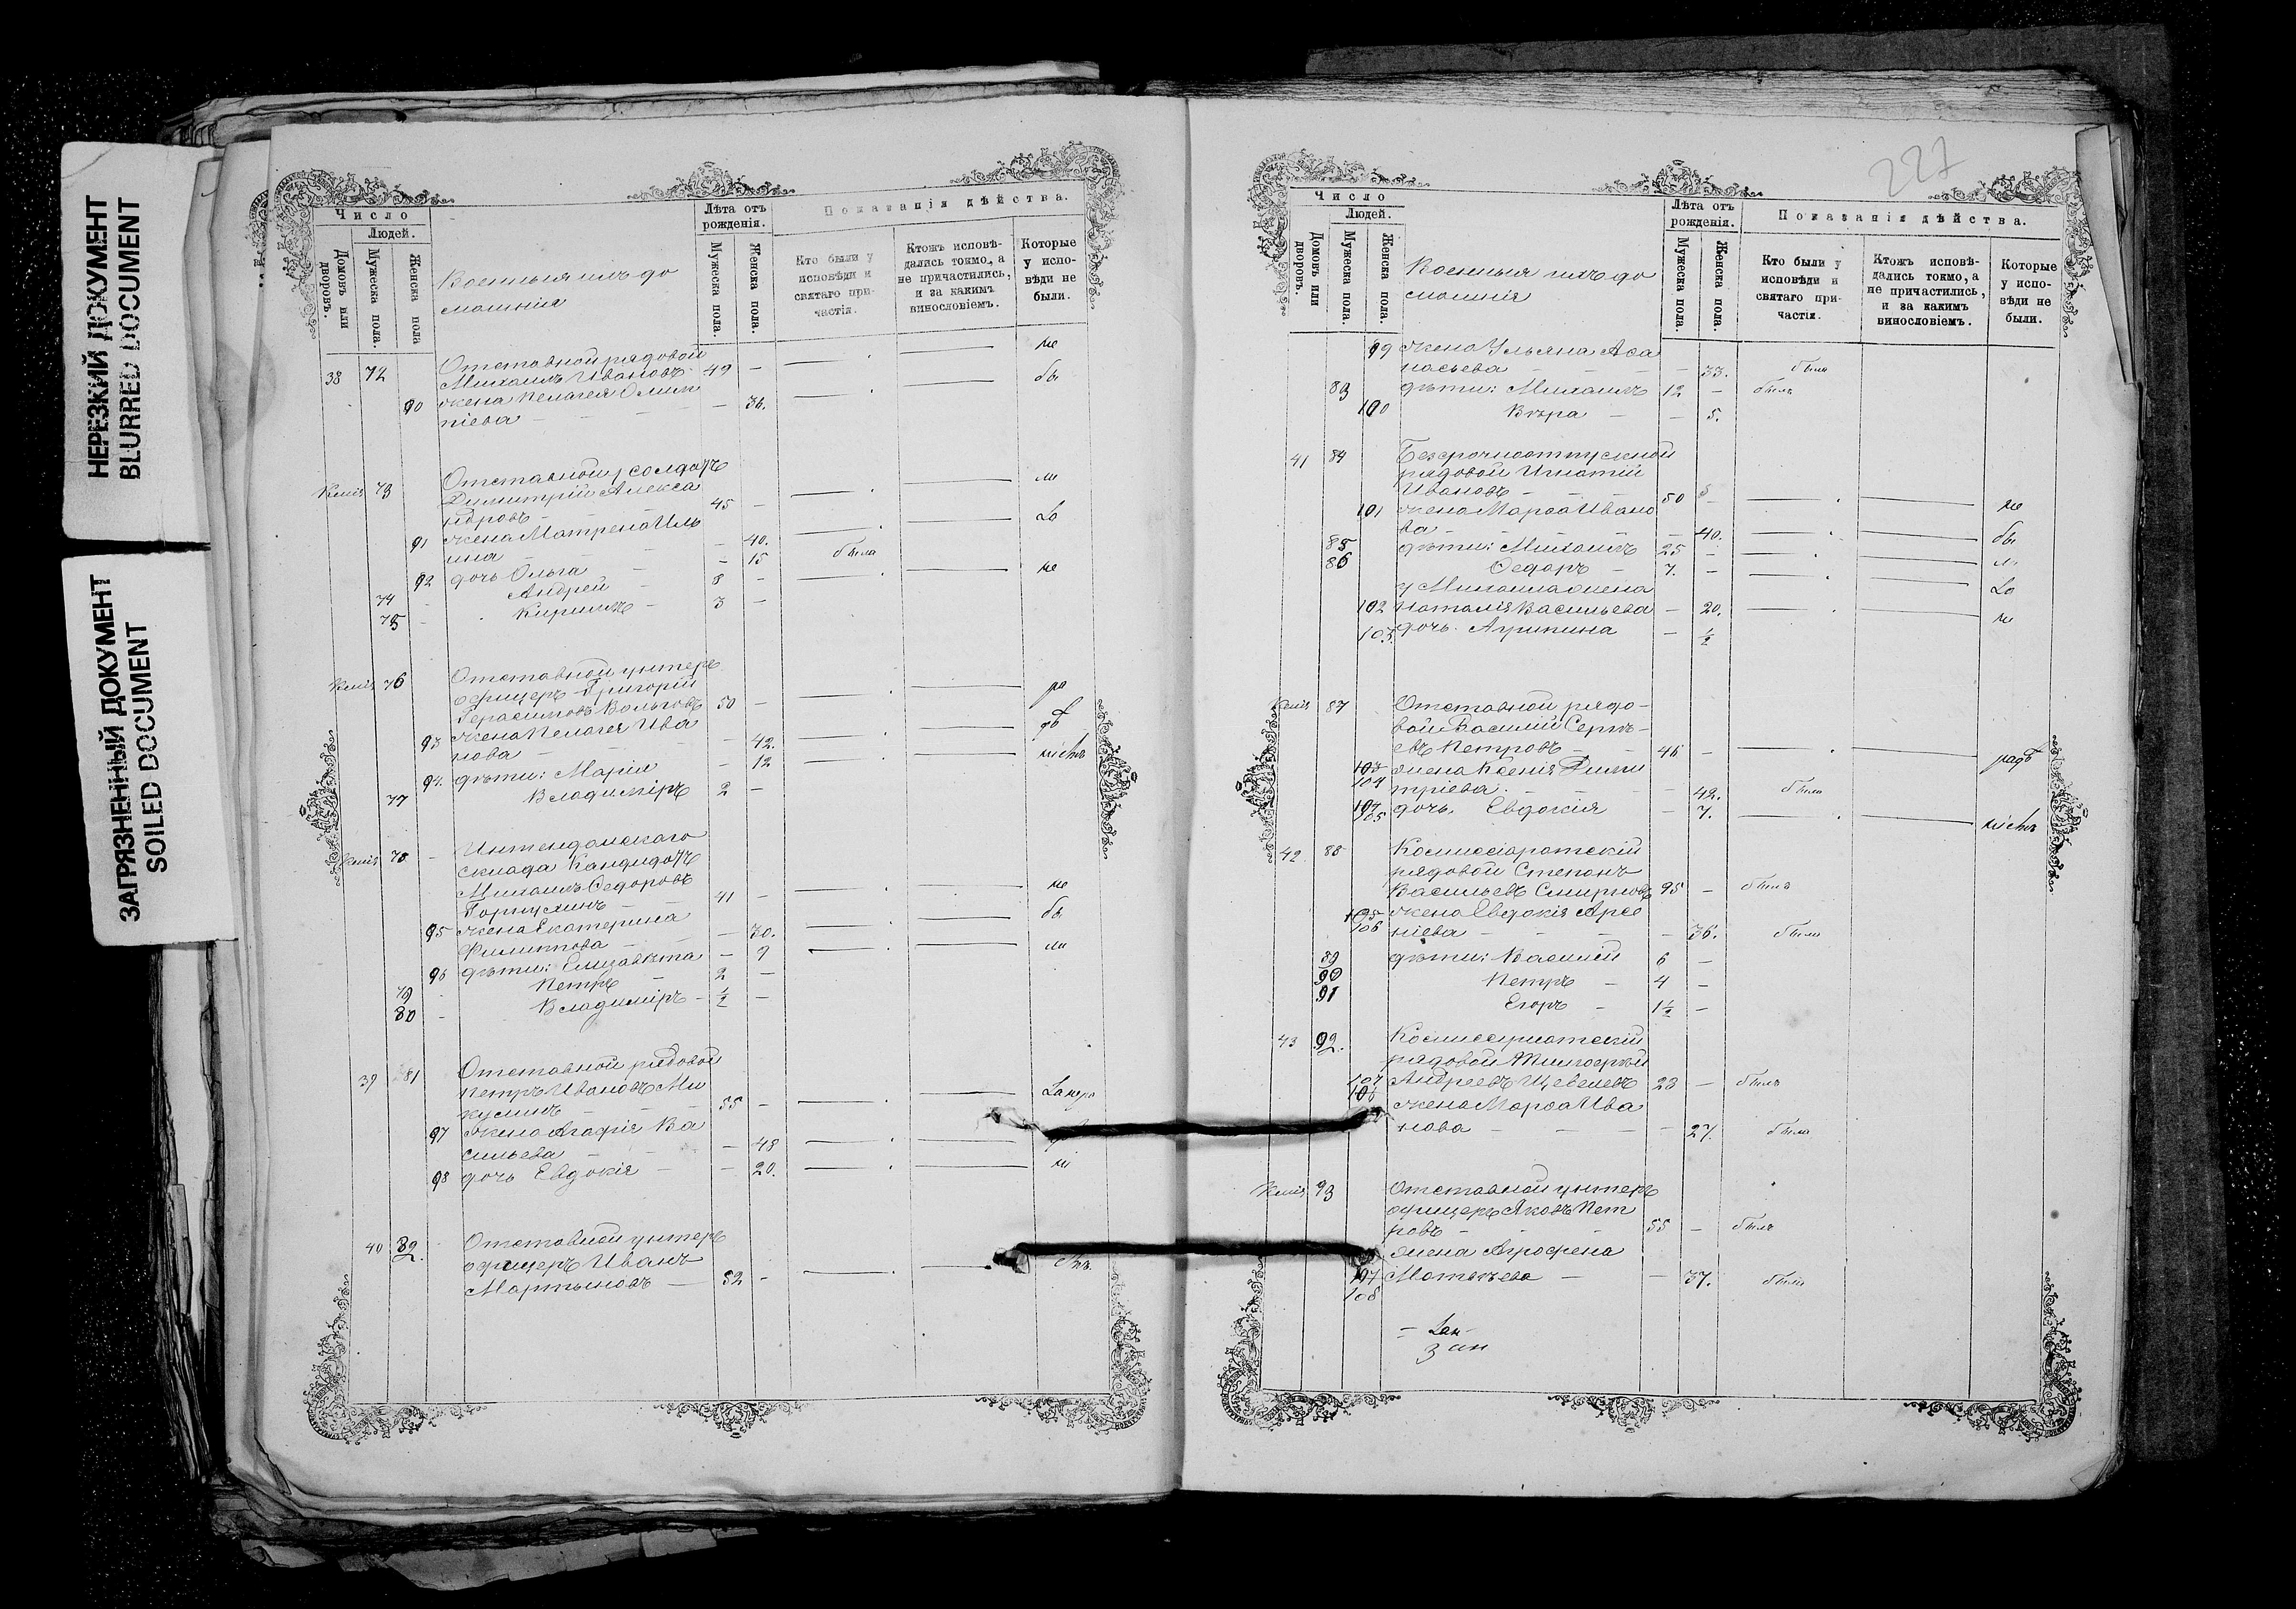 НЕРЕЗКИЙ ДОКУМЕНТ
BLURRED DOCUMENT
ЗАГРЯЗНЕННЫЙ ДОКУМЕНТ
SOILED DOCUMENT
Число
Людей.
Домовъ или дворовъ.
Мужеска пола.
Женска пола
Военныя ихъ до
машнія
Лѣта отъ рожденія.
Мужеска пола.
Женска пола.
Показанія дѣйства.
Кто были у исповѣди и святаго причастія.
Ктожъ исповѣдались токмо, а не причастились, и за какимъ винословіемъ.
Которые у исповѣди не были.
38 72 Отставной рядовой
Михаилъ Ивановъ 49 - не
90 жена Пелагея Олим
піева - 36. бы
Келія 73 Отставной солдатъ
Димитрій Алекса
ндровъ 45 - ли
91 жена Матрена Иль
ина - 40.
92 дочь Ольга - 15 была
74 Андрей 8 - не
75 Кирилъ 3 -
Келія 76 Отставной унтеръ
офицеръ Григорій
Герасимовъ Вольговъ 50 - ра
93 жена Пелагея Ива
нова - 42.
94. дѣти: Марія - 12
77 Владиміръ 2 -
Келія 78 Интендантскаго
склада Кандидатъ
Михаилъ Федоровъ
41 - не
95 жена Екатерина
Филиппова - 30. бы
96 дѣти: Елизавѣта - 9 ли
79 Петръ 2 -
80 Владиміръ - ½ -
39 81 Отставной рядовой
Петръ Ивановъ Ми
кулинъ 55 -
97 жена Агафія Ва
сильева - 48
98 дочь Евдокія - 20.
40 82. Отставной унтеръ
офицеръ Иванъ
Мартыновъ 52 -
227
Число
Людей.
Домовъ или дворовъ.
Мужеска пола.
Женска пола.
Военныя ихъ до
машнія
Лѣта отъ рожденія.
Мужеска пола.
Женска пола.
Показанія дѣйства.
Кто были у исповѣди и святаго причастія.
Ктожъ исповѣдались токмо, а не причастились, и за какимъ винословіемъ.
Которые у исповѣди не были.
99 жена Ульяна Аѳа
насьева - 33. была
83 дѣти: Михаилъ 12 - былъ
100 Вѣра - 5.
41 84 Безсрочноотпускной
рядовой Игнатій
Ивановъ 50 - не
101 жена Марѳа Ивано
ва - 40. бы
85 дѣти: Михаилъ 25 - ли
86 Ѳедоръ 7. -
у Михаила жена
102 Наталія Васильева - 20. не
103. дочь Агрипина - ½
Келія 87 Отставной рядо-
вой Василій Сергѣ-
евъ Петровъ 46 -
103 104 жена Ксенія Дими
тріева - 42. была
105 дочь. Евдокія - 7.
42 88 Коммиссаріатскій
рядовой Степанъ
Васильевъ Смирновъ 95 - былъ
105 106 жена Евдокія Арсе
ніева - 36. была
89 дѣти: Василій 6 -
90 Петръ 4 -
91 Егоръ 1½ -
43 92.
рядовой Тимоѳей
Андреевъ Щевелевъ 28 - былъ
107 жена Марѳа Ива
нова - 27. была
Келія 93 Отставной унтеръ
офицеръ Яковъ Пет
ровъ 55 - былъ
жена Аграфена
107 108 Матвѣева - 37. была